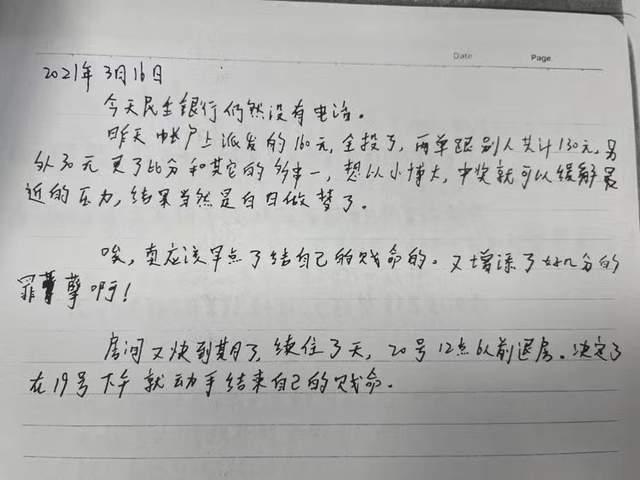 Date Page
2021年3月16日
今天民生银行仍然没有电话。
昨天帐户上派发的160元,全投了,两单跟别人共计130元,另
外30元买了比分和其它的多串一,想以小博大,中奖就可以缓解最
近的压力,结果当然是白日做梦了。
唉,真应该早点了结自己的贱命的。又增添了好几分的
罪孽啊!
房间又快到期了,续住了3天,20号12点以前退房。决定了
在19号下午就动手结束自己的贱命。